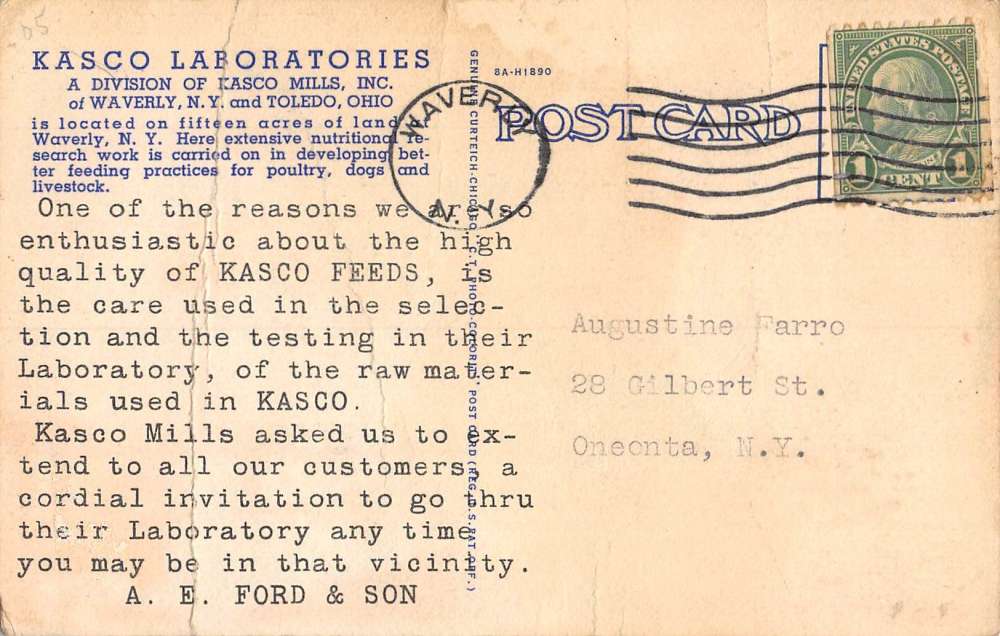 05
KASCO LABORATORIES
A DIVISION OF KASCO MILLS, INC.
of WAVERLY, N.Y. and TOLEDO, OHIO
is located on fifteen acres of land
Waverly, N. Y. Here extensive nutritional re-
search work is carried on in developing bet-
ter feeding practices for poultry, dogs and
livestock.
One of the reasons we are so
enthusiastic about the high
quality of KASCO FEEDS, is
the care used in the selec-
tion and the testing in their
Laboratory, of the raw mater-
ials used in KASCO.
Kasco Mills asked us to ex-
tend to all our customers, a
cordial invitation to go thru
their Laboratory any time
you may be in that vicinity.
A. E. FORD & SON
GENUINE CURTEICH-CHICAGO "C.T. PHOTO-COLORIT" POST CARD (REG. U.S. PAT. OFF.)
8A-H1890
POST CARD
WAVERLY
N. Y.
UNITED STATES POSTAGE
1 CENT 1
Augustine Farro
28 Gilbert St.
Oneonta, N.Y.